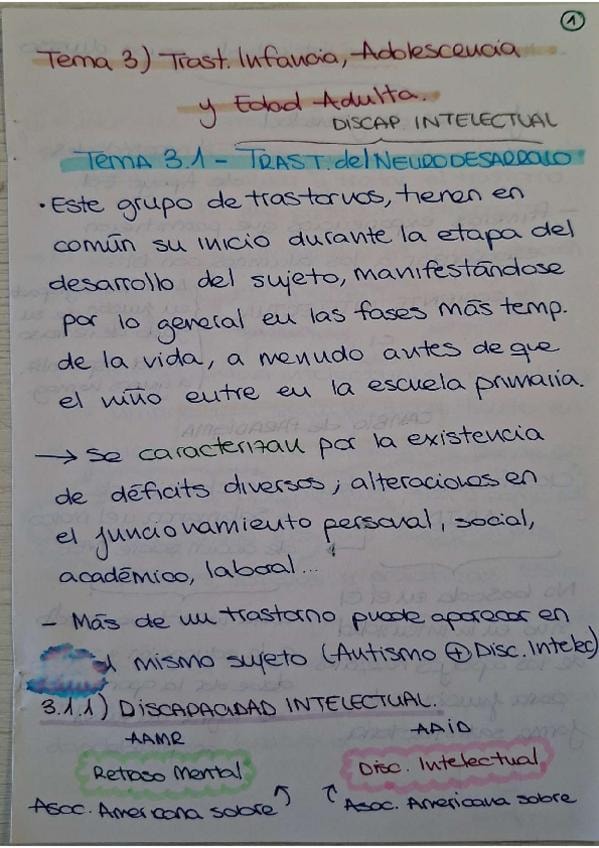 1
Tema 3) Trast. Infancia, Adolescencia
y Edad Adulta.
DISCAP. INTELECTUAL
TEMA 3.1 - TRAST. del NEURODESARROLLO
• Este grupo de trastornos, tienen en
común su inicio durante la etapa del
desarrollo del sujeto, manifestándose
por lo general en las fases más temp.
de la vida, a menudo antes de que
el niño entre en la escuela primaria.
→ Se caracterizan por la existencia
de déficits diversos; alteraciones en
el funcionamiento personal, social,
académico, laboral...
- Más de un trastorno puede aparecer en
el mismo sujeto (Autismo ⊕ Disc. Intelec)
3.1.1) DISCAPACIDAD INTELECTUAL.
AAMR AAID
Retraso Mental Disc. Intelectual
Asoc. Americana sobre Asoc. Americana sobre